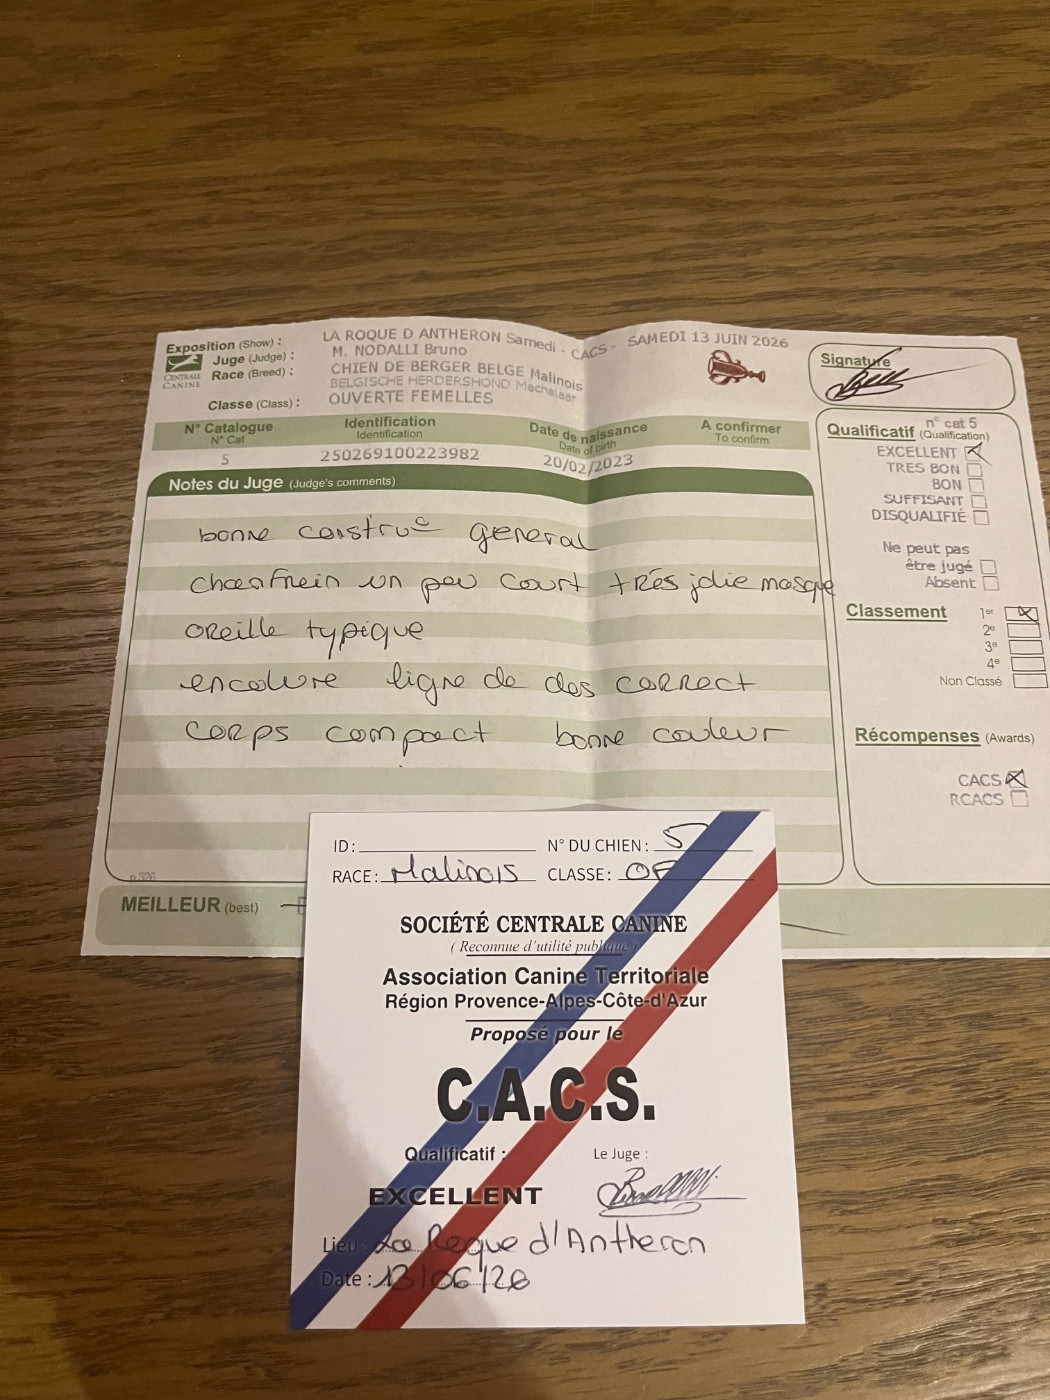 Exposition (Show) : LA ROQUE D ANTHERON Samedi - CACS - SAMEDI 13 JUIN 2026
Juge (Judge) : M. NODALLI Bruno
Race (Breed) : CHIEN DE BERGER BELGE Malinois
BELGISCHE HERDERSHOND Mechelaar
CENTRALE
CANINE
Classe (Class) : OUVERTE FEMELLES
Signature
N° Catalogue Identification Date de naissance A confirmer
N° Cat Identification Date of birth To confirm
5 250269100223982 20/02/2023
Notes du Juge (Judge's comments)
bonne construc general
chanfrein un peu court très jolie masque
oreille typique
encolure ligne de dos correct
corps compact bonne couleur
n° cat 5
Qualificatif (Qualification)
EXCELLENT
TRES BON
BON
SUFFISANT
DISQUALIFIÉ
Ne peut pas
être jugé
Absent
Classement 1er
2e
3e
4e
Non Classé
Récompenses (Awards)
CACS
RCACS
MEILLEUR (best)
ID: N° DU CHIEN : 5
RACE: Malinois CLASSE: OF
SOCIÉTÉ CENTRALE CANINE
( Reconnue d'utilité publique )
Association Canine Territoriale
Région Provence-Alpes-Côte-d'Azur
Proposé pour le
C.A.C.S.
Qualificatif : Le Juge :
EXCELLENT
Lieu : La Roque d'Antheron
Date : 13/06/26